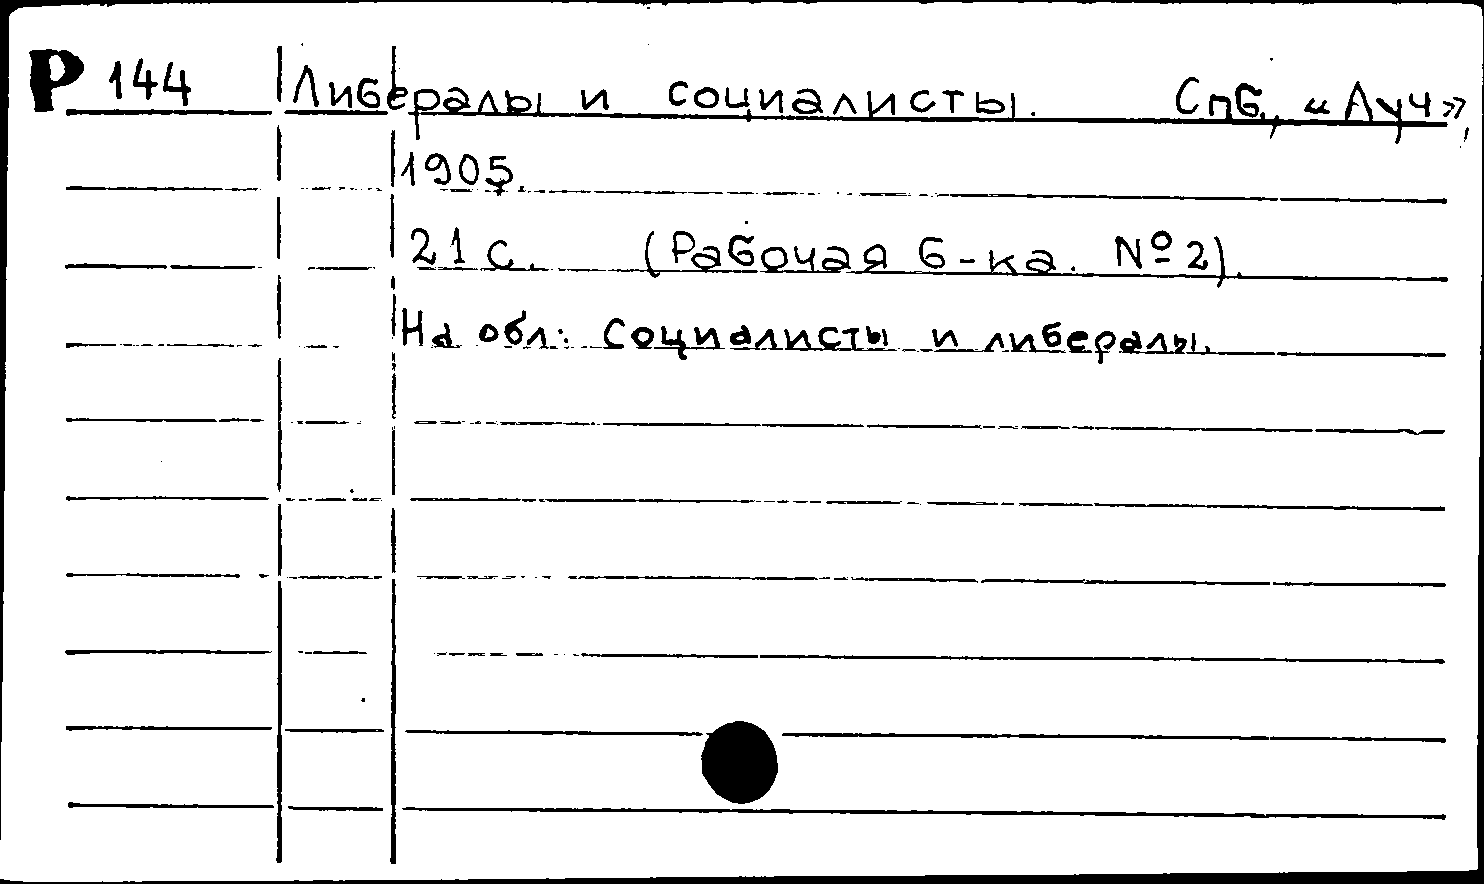 Р 144 Либералы и социалисты. Спб., «Луч»,
1905.
21 с. (Рабочая б-ка. № 2).
На обл: Социалисты и либералы.